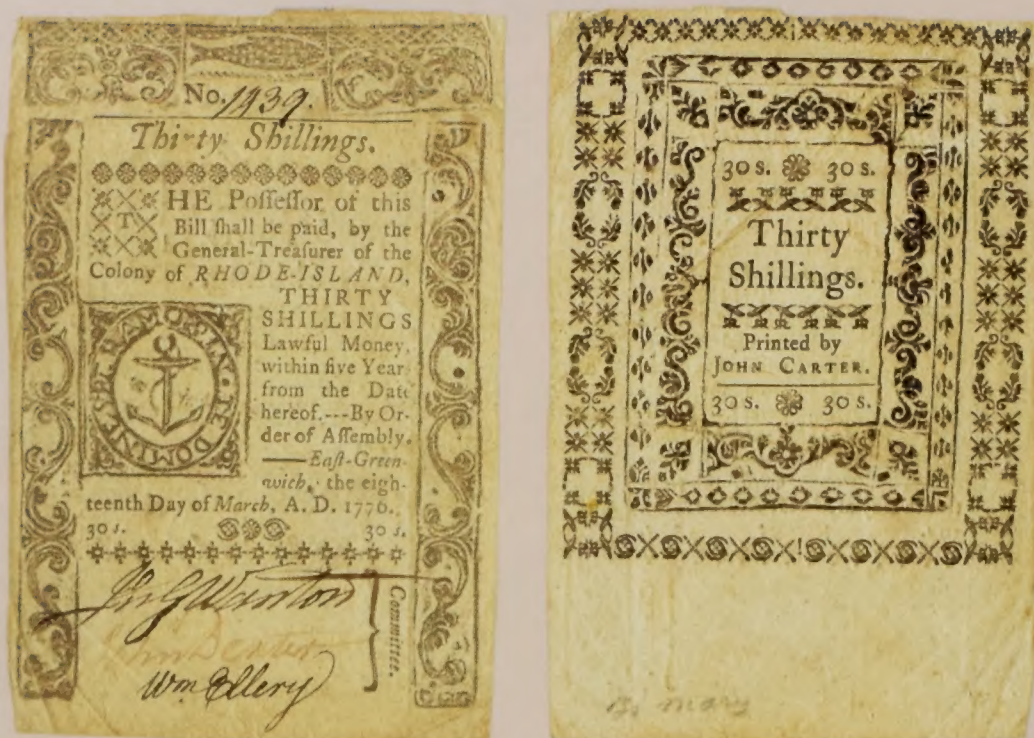 No. 1439.
Thirty Shillings.
THE Poſſeſſor of this
Bill ſhall be paid, by the
General-Treaſurer of the
Colony of RHODE-ISLAND,
THIRTY
SHILLINGS
Lawful Money,
within five Year
from the Date
hereof.---By Or-
der of Aſſembly.
— Eaſt-Green-
wich, the eigh-
teenth Day of March, A. D. 1776.
30 s. 30 s.
IN TE DOMINE SPERAMUS
Jn G Wanton
Jhn Dexter
Wm Ellery
Committee.
30 s. 30 s.
Thirty
Shillings.
Printed by
JOHN CARTER.
30 s. 30 s.